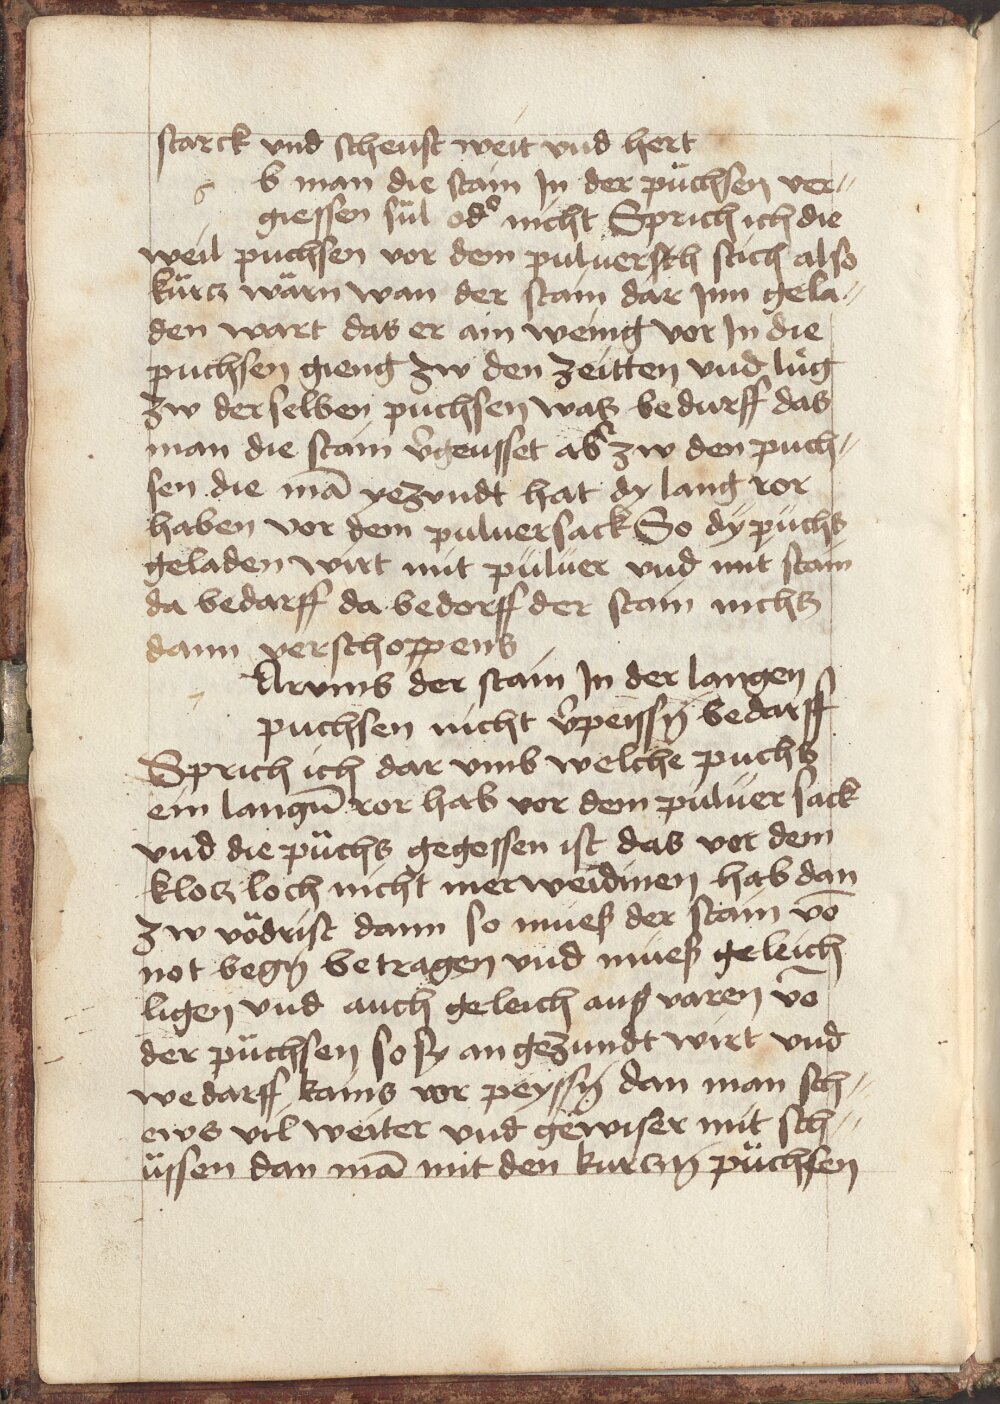 starck vnd scheust weit vnd hert
6 b man die stain Jn der püchsen ver//
giessen sül odᵉ nicht Sprich ich die
weil puchsen vor dem puluersch stich also
kürcz wärn wan der stain dar Jnn gela//
den wart das er ain wenig vor Jn die
puchsen gieng zw den zeitten vnd lüg
zw derselben puchsen was bedurff das
man die stain v̄geusset abᵉ zw den puch//
sen die mā yezundt hat dy lang ror
haben vor dem puluersack So dÿ püchs
geladen wirt mit püluer vnd mit stain
da bedarff da bedorff der stain nichs
dann verschoppens
7 Arvmb der stain Jn der langen
puchsen nicht v̄peissn̄ bedarff
Sprich ich dar vmb welche puchs
ein langn̄ ror hab vor dem puluer sack
vnd die püchs gegossen ist das vor dem
klocz loch nicht mer weidinen hab dan
zw vödrist dann so mues der stain vō
not begn̄ betragen vnd mües geleich
ligen vnd auch geleich aus varen vō
der püchsen so sy angezundt wirt vnd
wedarff kains vor peyssn̄ dan man sch//
ews vil weiter vnd gewiser mit sch//
üssen dan mā mit den kurczn̄ püchsen